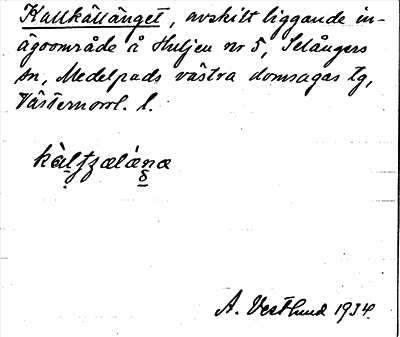 Kallkällänget, avskilt liggande in-
ägoområde å Huljen nr 5, Selångers
sn, Medelpads västra domsagas tg,
Västernorrl. l.
A. Vestlund 1934.